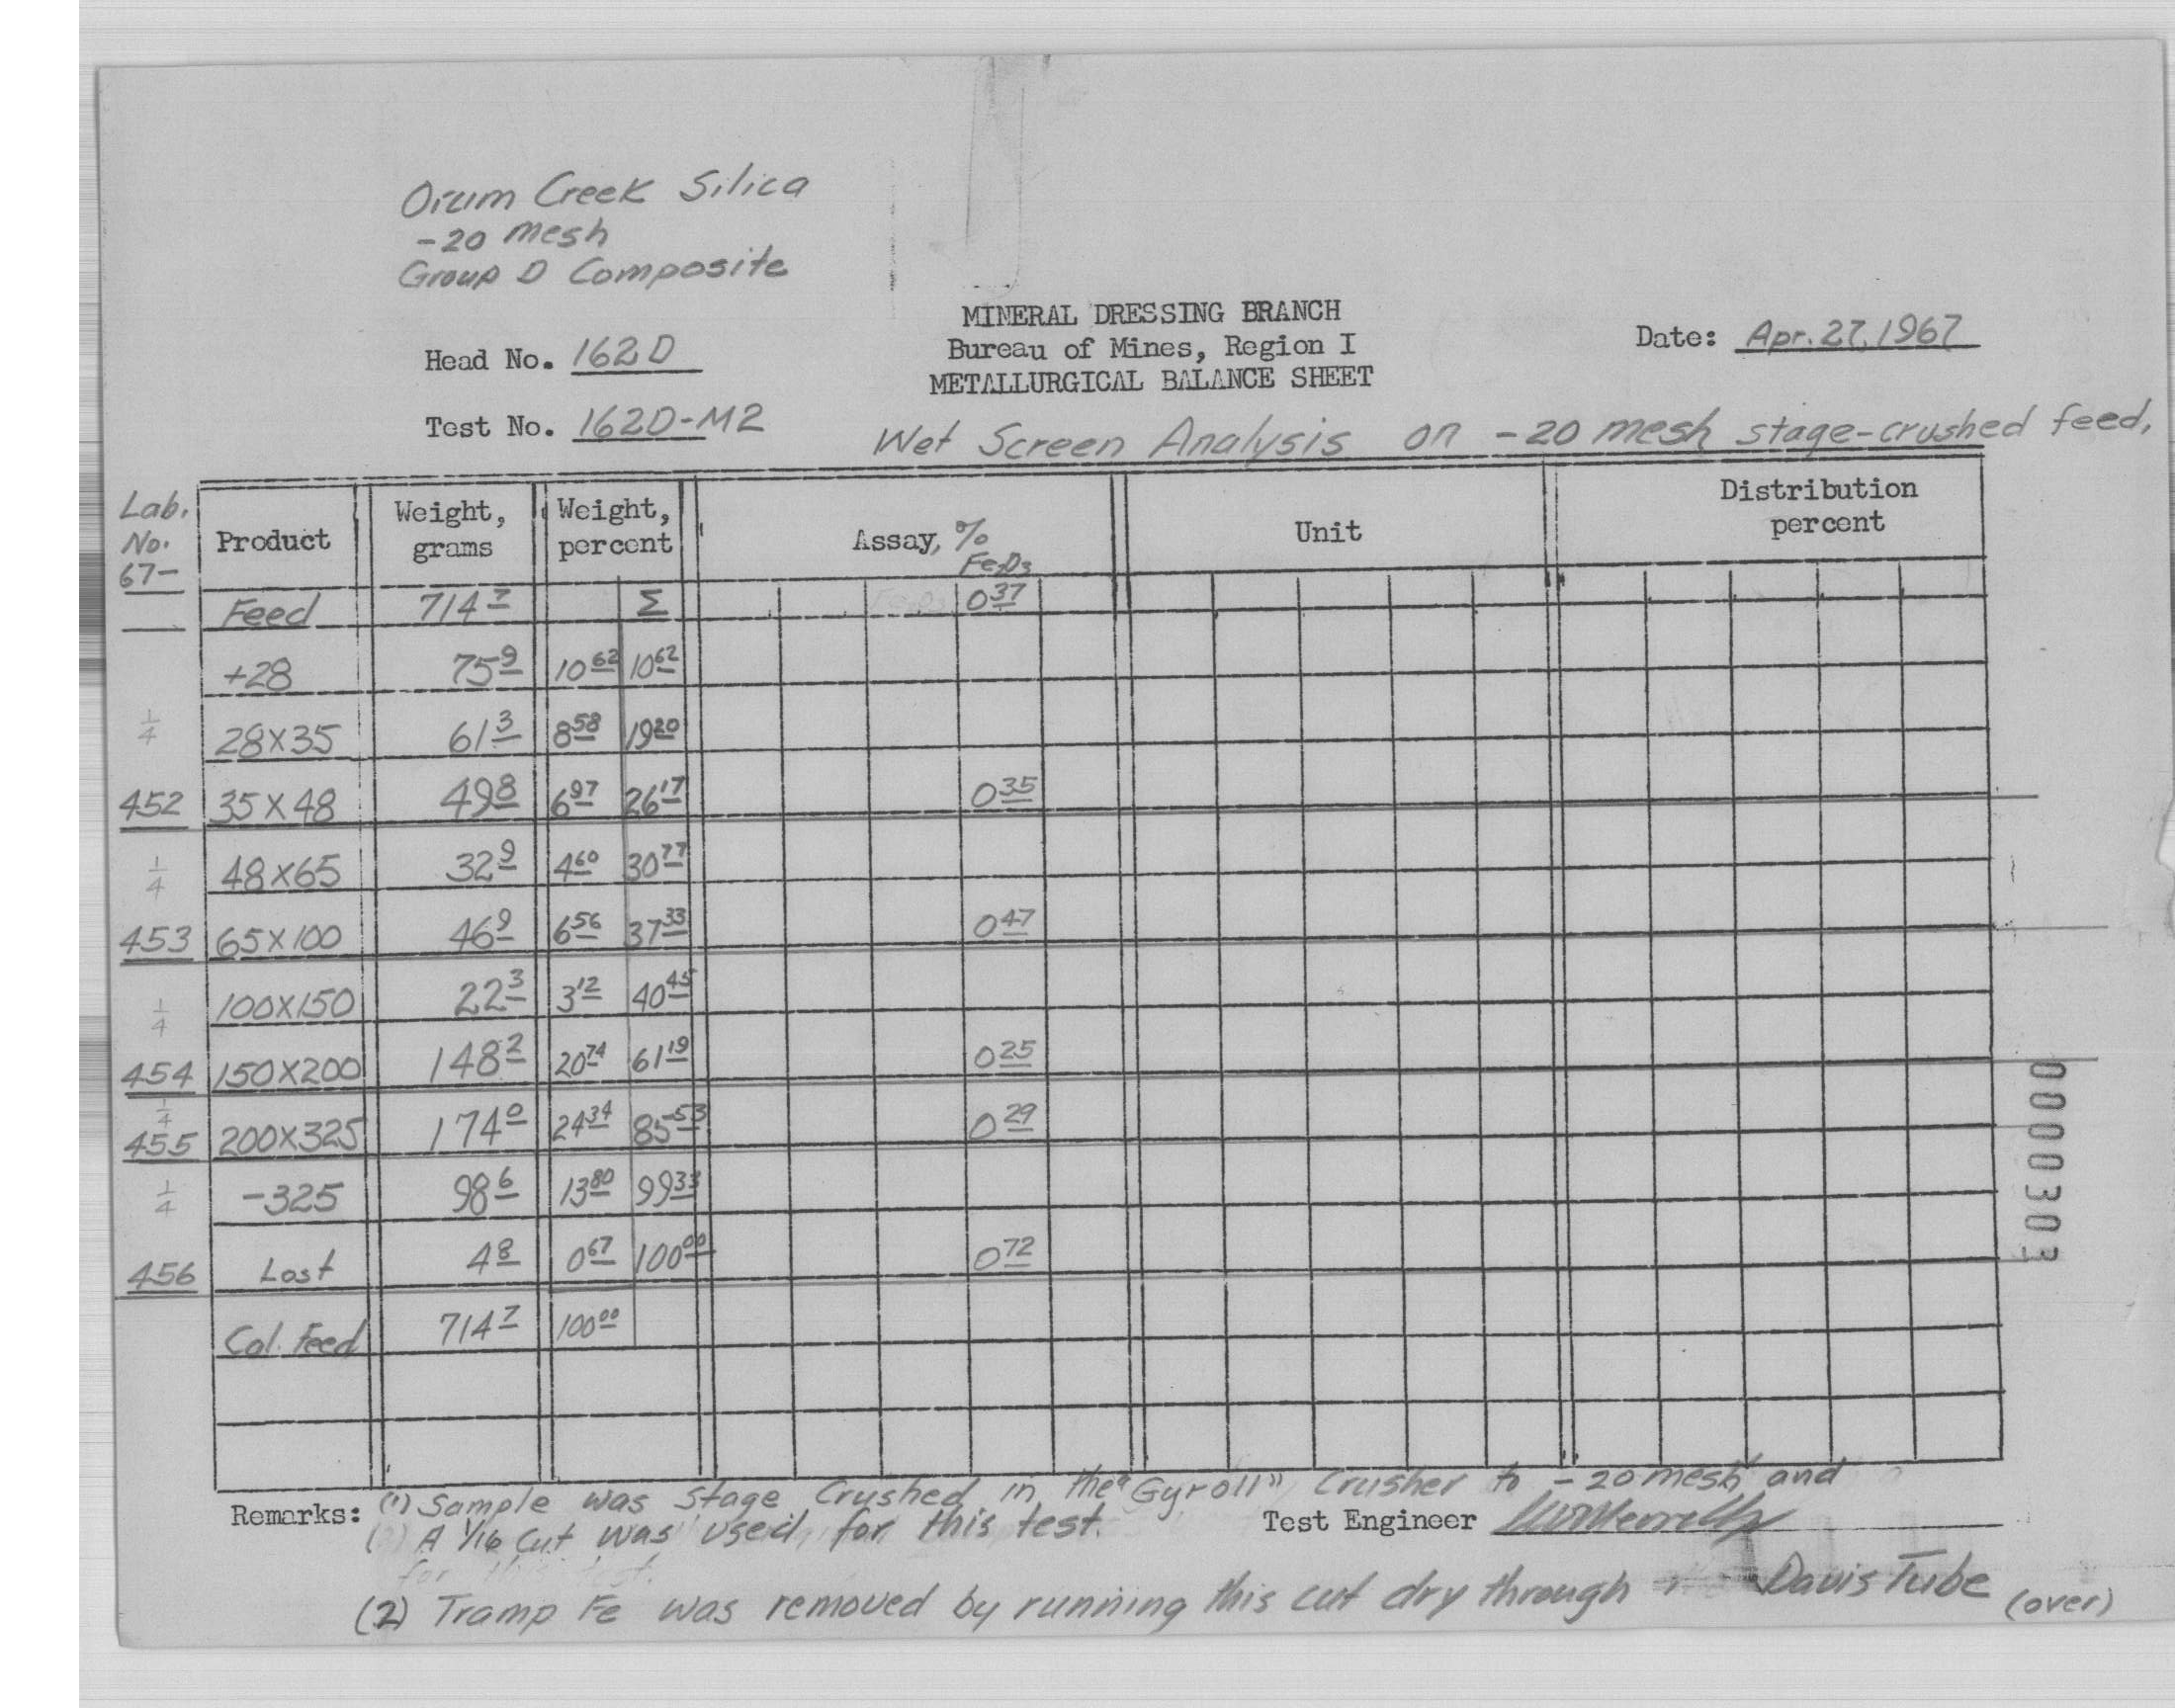 Orum Creek Silica
-20 mesh
Group D Composite
MINERAL DRESSING BRANCH
Bureau of Mines, Region I
METALLURGICAL BALANCE SHEET
Date: Apr. 27, 1967
Head No. 162D
Test No. 162D-M2
Wet Screen Analysis on -20 mesh stage-crushed feed,
Lab. No. 67- Product Weight, grams Weight, percent Assay, % Fe2O3 Unit Distribution percent
Feed 714.7 Σ 0.37
+28 75.9 10.62 10.62
1/4 28x35 61.3 8.58 19.20
452 35x48 49.8 6.97 26.17 0.35
1/4 48x65 32.9 4.60 30.77
453 65x100 46.9 6.56 37.33 0.47
1/4 100x150 22.3 3.12 40.45
454 150x200 148.2 20.74 61.19 0.25
1/4 455 200x325 174.0 24.34 85.53 0.29
1/4 -325 98.6 13.80 99.33
456 Lost 4.8 0.67 100.00 0.72
Cal. Feed 714.7 100.00
0000303
Remarks: (1) Sample was stage crushed in the "Gyroll" crusher to -20 mesh and
A 1/16 cut was used for this test.
Test Engineer
for this test.
(2) Tramp Fe was removed by running this cut dry through Davis Tube (over)